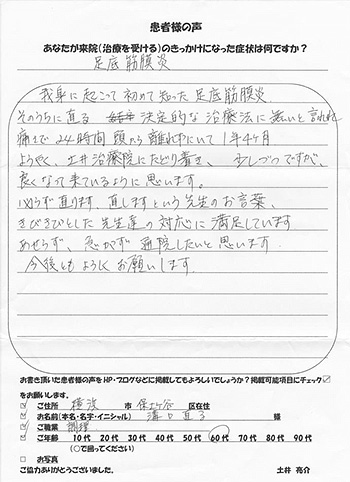 患者様の声
あなたが来院(治療を受ける)のきっかけになった症状は何ですか?
足底筋膜炎
我身に起こって初めて知った足底筋膜炎
そのうちに直る 決定的な治療法に無いと言われ
痛さで24時間頭から離れずにいて1年4ヶ月
ようやく、土井治療院にたどり着き、少しづつですが、
良くなって来ているように思います。
必らず直ります、直しますという先生のお言葉、
きびきびとした先生達の対応に満足しています
あせらず、急がず通院したいと思います.
今後ともよろしくお願いします.
お書き頂いた患者様の声をHP・ブログなどに掲載してもよろしいでしょうか?掲載可能項目にチェック☑
をお願いします。
☑ ご住所 横浜 市 保土ヶ谷 区在住
☑ お名前(本名・名字・イニシャル) 溝口 直子 様
☑ ご職業 調理
☑ ご年齢 10代 20代 30代 40代 50代 60代 70代 80代 90代
(○で囲ってください)
□ お写真
ご協力ありがとうございました。 土井 亮介